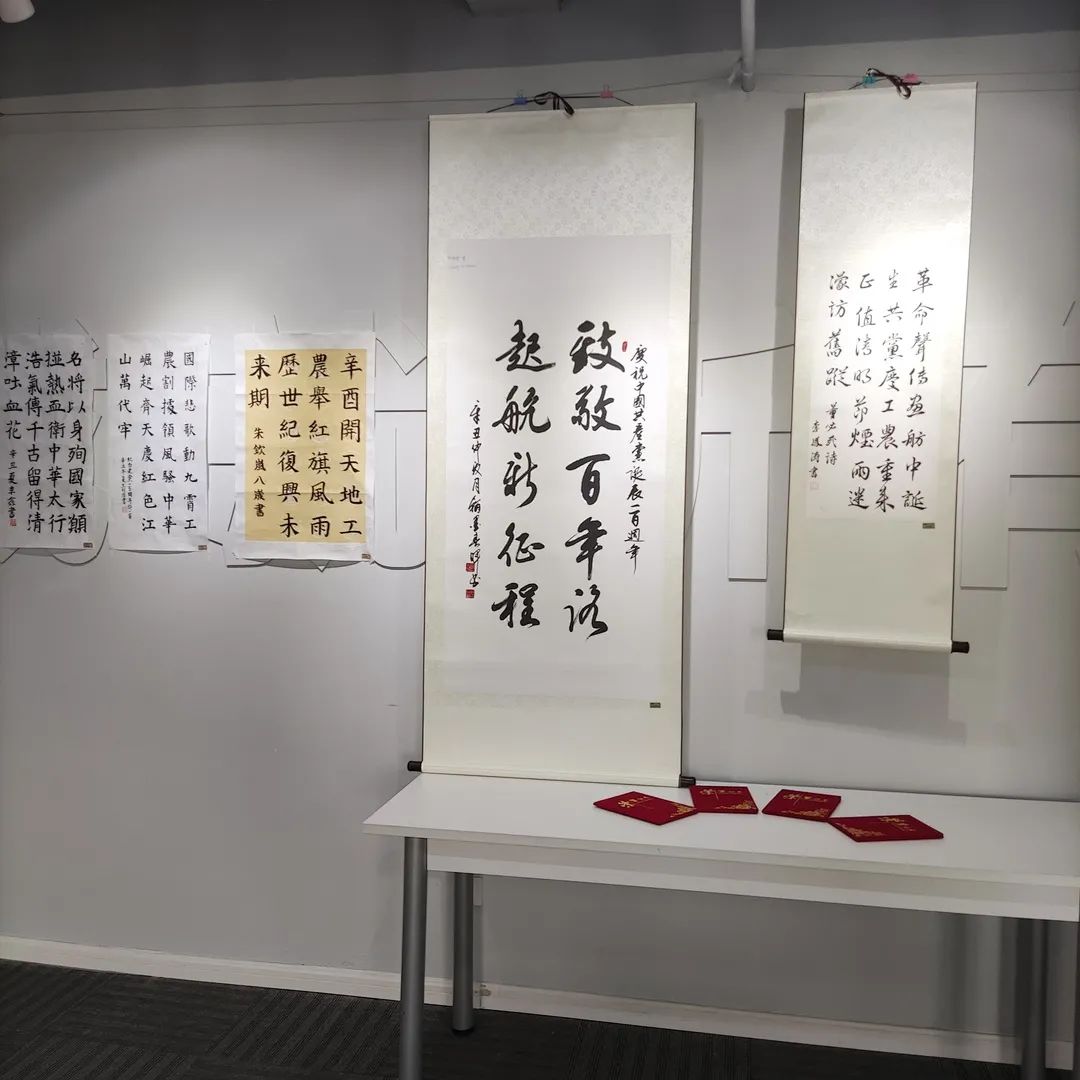 革命聲传画舫中誕
生共黨慶工農重来
正值清明节煙雨迷
濛訪舊蹤 董必武诗
慶祝中國共產黨誕辰一百週年
致敬百年路
起航新征程
辛丑仲秋月
辛酉開天地工
農舉紅旗風雨
歷世紀復興未
来期
八歲書
國際悲歌動九霄工
農割據領風騷中華
崛起齊天慶紅色江
山萬代牢
名將以身殉國家願
拚熱血衛中華太行
浩氣傳千古留得清
漳吐血花